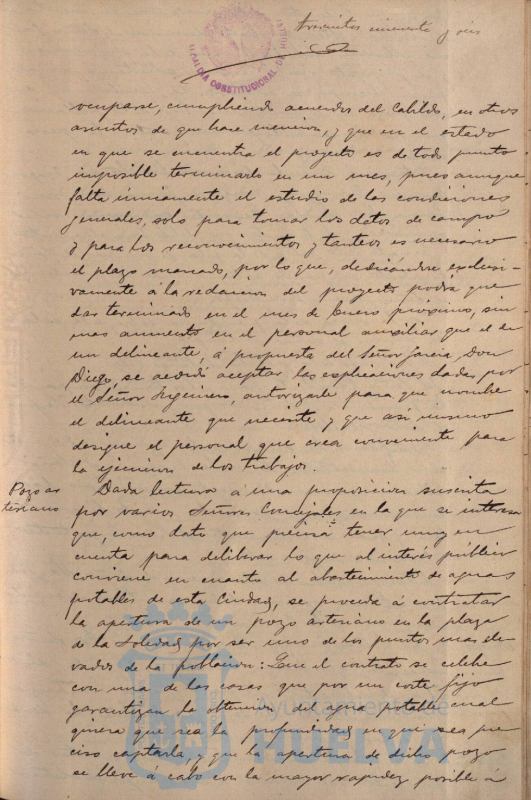 trescientos cincuenta y seis
ALCALDIA CONSTITUCIONAL DE HUELVA
ocuparse, cumpliendo acuerdos del Cabildo, en otros
asuntos de que hace mencion, y que en el estado
en que se encuentra el proyecto es de todo punto
imposible terminarlo en un mes, pues aunque
falta únicamente el estudio de las condiciones
generales, solo para tomar los datos de campo
y para los reconocimientos y tanteos es necesario
el plazo marcado, por lo que, dedicándose exclusi-
vamente á la redaccion del proyecto podrá que
dar terminado en el mes de Enero próximo, sin
mas aumento en el personal auxiliar que el de
un delineante, á propuesta del Señor García, Don
Diego, se acordó aceptar las esplicaciones dadas por
el Señor Ingeniero, autorizarle para que nombre
el delineante que necesite y que asi mismo
designe el personal que crea conveniente para
la ejecucion de los trabajos.
Pozo ar
tesiano
Dada lectura á una proposicion suscrita
por varios Señores Concejales en la que se interesa
que, como dato que precisa tener muy en
cuenta para deliberar lo que al interés público
conviene en cuanto al abastecimiento de aguas
potables de esta Ciudad, se proceda á contratar
la apertura de un pozo artesiano en la plaza
de la Soledad por ser uno de los puntos mas ele-
vados de la poblacion: Que el contrato se celebre
con una de las casas que por un coste fijo
garantizan la obtencion del agua potable cual
quiera que sea la profundidad en que sea pre
ciso captarla, y que la apertura de dicho pozo
se lleve á cabo con la mayor rapidez posible á
Ayuntamiento de
HUELVA